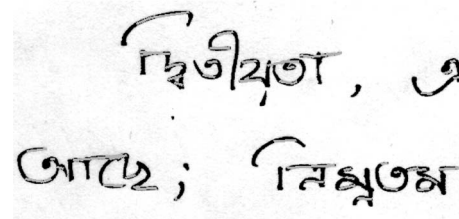 দ্বিতীয়তা,
আছে; নিম্নতম